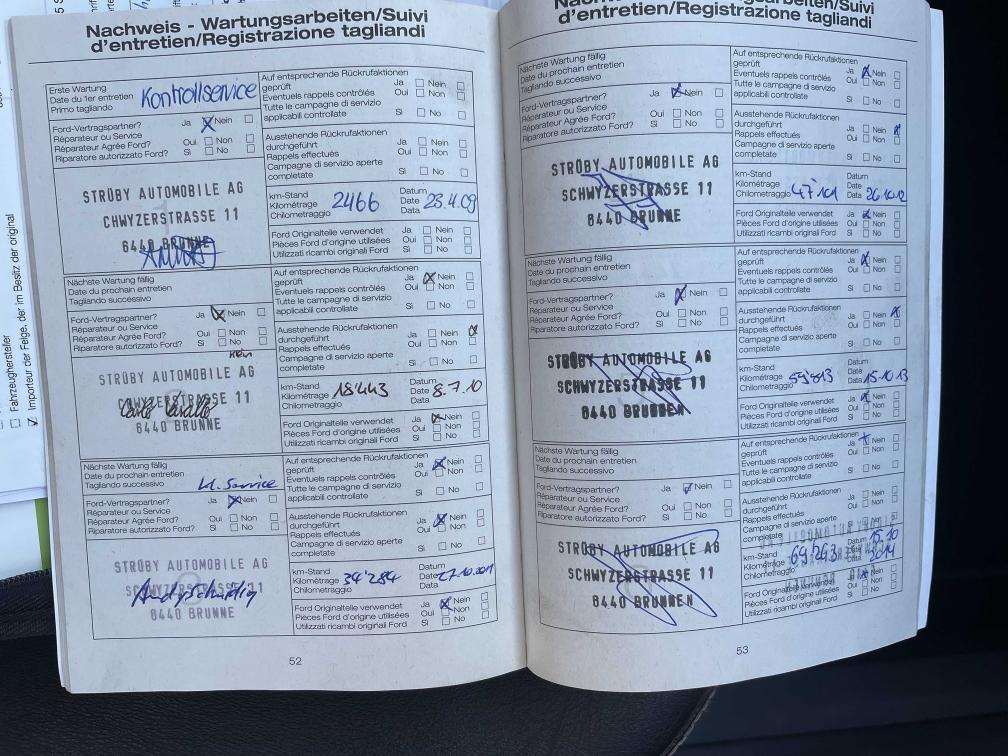 Fahrzeughersteller
Importeur der Felge, der im Besitz der original
Nachweis - Wartungsarbeiten/Suivi
d'entretien/Registrazione tagliandi
Erste Wartung
Date du 1er entretien
Primo tagliando
Kontrollservice
Auf entsprechende Rückrufaktionen
geprüft
Ja Nein
Eventuels rappels contrôlés
Oui Non
Tutte le campagne di servizio
applicabili controllate
Si No
Ford-Vertragspartner?
Ja Nein
Réparateur ou Service
Réparateur Agrée Ford?
Oui Non
Riparatore autorizzato Ford?
Si No
Ausstehende Rückrufaktionen
durchgeführt
Ja Nein
Rappels effectués
Oui Non
Campagne di servizio aperte
completate
Si No
STRÜBY AUTOMOBILE AG
CHWYZERSTRASSE 11
6440 BRUNNE
km-Stand
Kilométrage
Chilometraggio
2466
Datum
Date
Data
23.4.09
Ford Originalteile verwendet
Ja Nein
Pièces Ford d'origine utilisées
Oui Non
Utilizzati ricambi originali Ford
Si No
Nächste Wartung fällig
Date du prochain entretien
Tagliando successivo
Auf entsprechende Rückrufaktionen
geprüft
Ja Nein
Eventuels rappels contrôlés
Oui Non
Tutte le campagne di servizio
applicabili controllate
Si No
Ford-Vertragspartner?
Ja Nein
Réparateur ou Service
Réparateur Agrée Ford?
Oui Non
Riparatore autorizzato Ford?
Si No
Ausstehende Rückrufaktionen
durchgeführt
Ja Nein
Rappels effectués
Oui Non
Campagne di servizio aperte
completate
Si No
STRÜBY AUTOMOBILE AG
SCHWYZERSTRASSE 11
6440 BRUNNE
km-Stand
Kilométrage
Chilometraggio
18'443
Datum
Date
Data
8.7.10
Ford Originalteile verwendet
Ja Nein
Pièces Ford d'origine utilisées
Oui Non
Utilizzati ricambi originali Ford
Si No
Nächste Wartung fällig
Date du prochain entretien
Tagliando successivo
kl. Service
Auf entsprechende Rückrufaktionen
geprüft
Ja Nein
Eventuels rappels contrôlés
Oui Non
Tutte le campagne di servizio
applicabili controllate
Si No
Ford-Vertragspartner?
Ja Nein
Réparateur ou Service
Réparateur Agrée Ford?
Oui Non
Riparatore autorizzato Ford?
Si No
Ausstehende Rückrufaktionen
durchgeführt
Ja Nein
Rappels effectués
Oui Non
Campagne di servizio aperte
completate
Si No
STRÜBY AUTOMOBILE AG
SCHWYZERSTRASSE 11
6440 BRUNNE
km-Stand
Kilométrage
Chilometraggio
34'284
Datum
Date
Data
27.10.2011
Ford Originalteile verwendet
Ja Nein
Pièces Ford d'origine utilisées
Oui Non
Utilizzati ricambi originali Ford
Si No
52
d'entretien/Registrazione tagliandi
Nächste Wartung fällig
Date du prochain entretien
Tagliando successivo
Auf entsprechende Rückrufaktionen
geprüft
Ja Nein
Eventuels rappels contrôlés
Oui Non
Tutte le campagne di servizio
applicabili controllate
Si No
Ford-Vertragspartner?
Ja Nein
Réparateur ou Service
Réparateur Agrée Ford?
Oui Non
Riparatore autorizzato Ford?
Si No
Ausstehende Rückrufaktionen
durchgeführt
Ja Nein
Rappels effectués
Oui Non
Campagne di servizio aperte
completate
Si No
STRÜBY AUTOMOBILE AG
SCHWYZERSTRASSE 11
6440 BRUNNE
km-Stand
Kilométrage
Chilometraggio
47'101
Datum
Date
Data
26.10.12
Ford Originalteile verwendet
Ja Nein
Pièces Ford d'origine utilisées
Oui Non
Utilizzati ricambi originali Ford
Si No
Nächste Wartung fällig
Date du prochain entretien
Tagliando successivo
Auf entsprechende Rückrufaktionen
geprüft
Ja Nein
Eventuels rappels contrôlés
Oui Non
Tutte le campagne di servizio
applicabili controllate
Si No
Ford-Vertragspartner?
Ja Nein
Réparateur ou Service
Réparateur Agrée Ford?
Oui Non
Riparatore autorizzato Ford?
Si No
Ausstehende Rückrufaktionen
durchgeführt
Ja Nein
Rappels effectués
Oui Non
Campagne di servizio aperte
completate
Si No
STRÜBY AUTOMOBILE AG
SCHWYZERSTRASSE 11
6440 BRUNNEN
km-Stand
Kilométrage
Chilometraggio
Datum
Date
Data
15.10.13
Ford Originalteile verwendet
Ja Nein
Pièces Ford d'origine utilisées
Oui Non
Utilizzati ricambi originali Ford
Si No
Nächste Wartung fällig
Date du prochain entretien
Tagliando successivo
Auf entsprechende Rückrufaktionen
geprüft
Ja Nein
Eventuels rappels contrôlés
Oui Non
Tutte le campagne di servizio
applicabili controllate
Si No
Ford-Vertragspartner?
Ja Nein
Réparateur ou Service
Réparateur Agrée Ford?
Oui Non
Riparatore autorizzato Ford?
Si No
Ausstehende Rückrufaktionen
durchgeführt
Ja Nein
Rappels effectués
Oui Non
Campagne di servizio aperte
completate
Si No
STRÜBY AUTOMOBILE AG
SCHWYZERSTRASSE 11
6440 BRUNNEN
km-Stand
Kilométrage
Chilometraggio
69'263
Datum
Date
15.10
Ford Originalteile verwendet
Pièces Ford d'origine utilisées
Oui Non
Utilizzati ricambi originali Ford
Si No
53